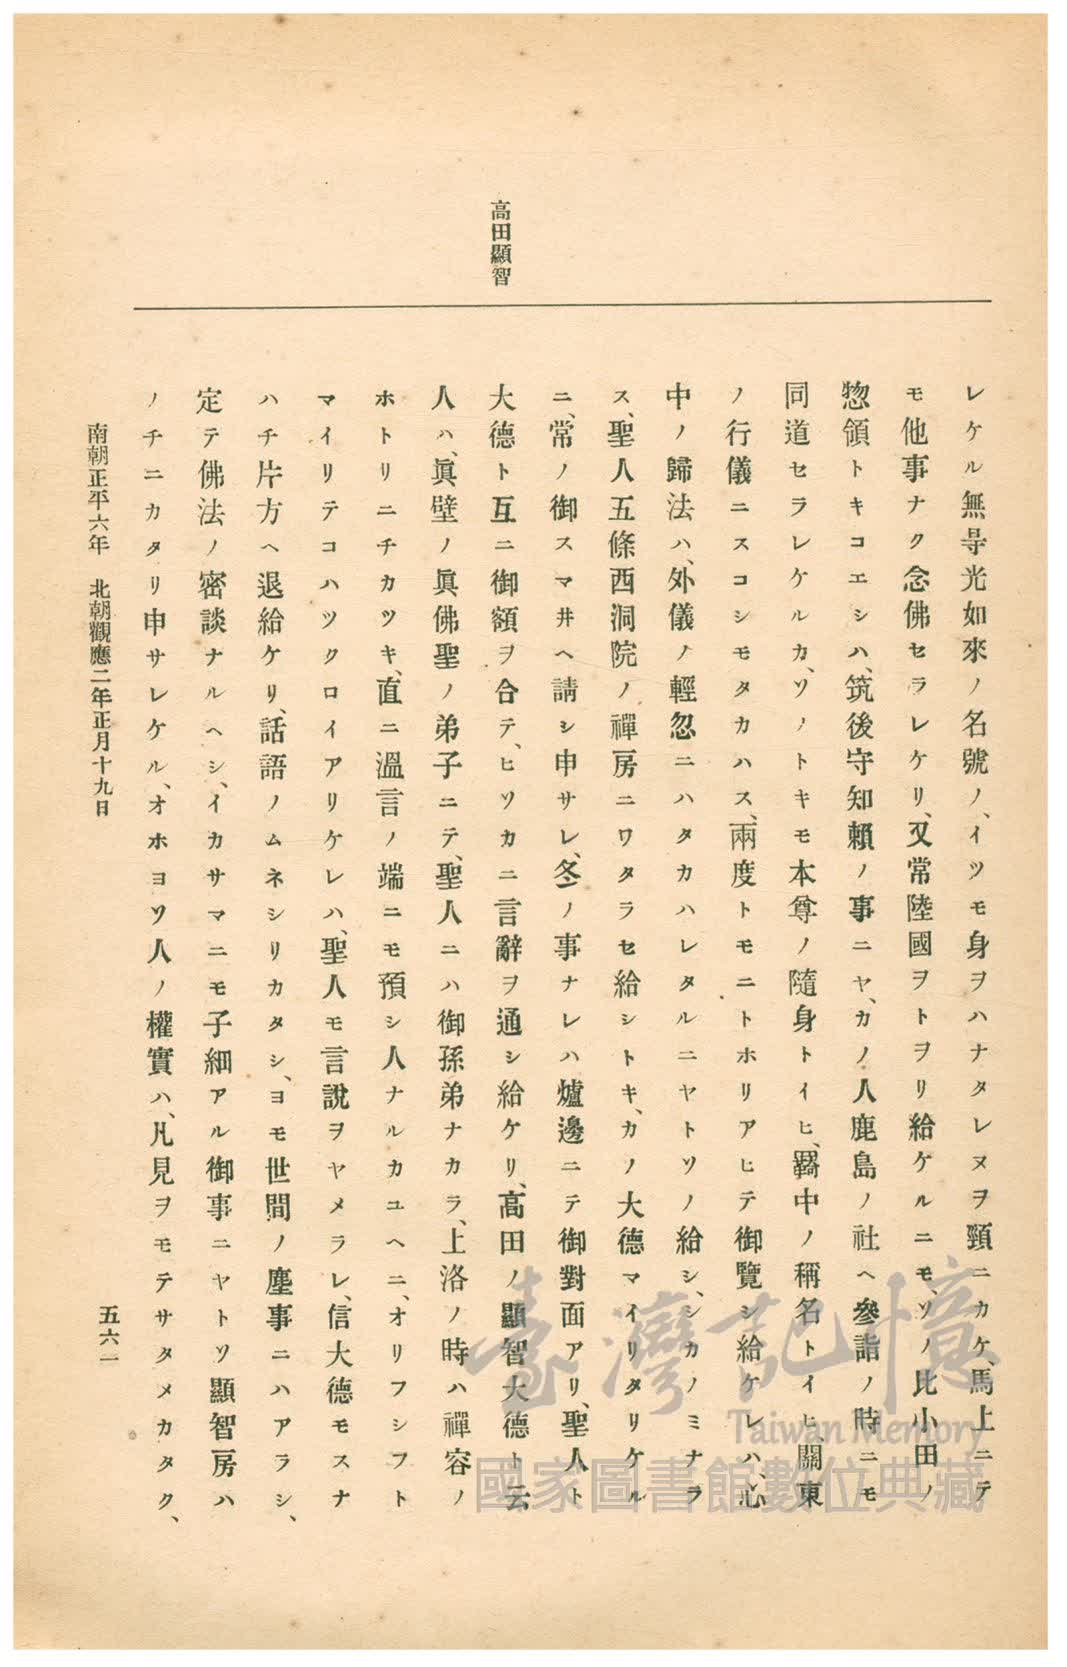 高田顯智
レケル無㝵光如來ノ名號ノ、イツモ身ヲハナタレヌヲ頸ニカケ、馬上ニテ
モ他事ナク念佛セラレケリ、又常陸國ヲトヲリ給ケルニモ、ソノ比小田ノ
惣領トキコエシハ、筑後守知賴ノ事ニヤ、カノ人鹿島ノ社ヘ參詣ノ時ニモ
同道セラレケルカ、ソノトキモ本尊ノ隨身トイヒ、羇中ノ稱名トイヒ、關東
ノ行儀ニスコシモタカハス、兩度トモニトホリアヒテ御覽シ給ケレハ、心
中ノ歸法ハ、外儀ノ輕忽ニハタカハレタルニヤトソノ給シ、シカノミナラ
ス、聖人五條西洞院ノ禪房ニワタラセ給シトキ、カノ大德マイリタリケル
ニ、常ノ御スマ井ヘ請シ申サレ、冬ノ事ナレハ爐邊ニテ御對面アリ、聖人ト
大德ト互ニ御額ヲ合テ、ヒソカニ言辭ヲ通シ給ケリ、高田ノ顯智大德ト云
人ハ、眞壁ノ眞佛聖ノ弟子ニテ、聖人ニハ御孫弟ナカラ、上洛ノ時ハ禪容ノ
ホトリニチカツキ、直ニ溫言ノ端ニモ預シ人ナルカユヘニ、オリフシフト
マイリテコハツクロイアリケレハ、聖人モ言說ヲヤメラレ、信大德モスナ
ハチ片方ヘ退給ケリ、話語ノムネシリカタシ、ヨモ世間ノ塵事ニハアラシ、
定テ佛法ノ密談ナルヘシ、イカサマニモ子細アル御事ニヤトソ顯智房ハ
ノチニカタリ申サレケル、オホヨソ人ノ權實ハ、凡見ヲモテサタメカタク、
南朝正平六年　北朝觀應二年正月十九日
五六一
臺灣記憶
Taiwan Memory
國家圖書館數位典藏